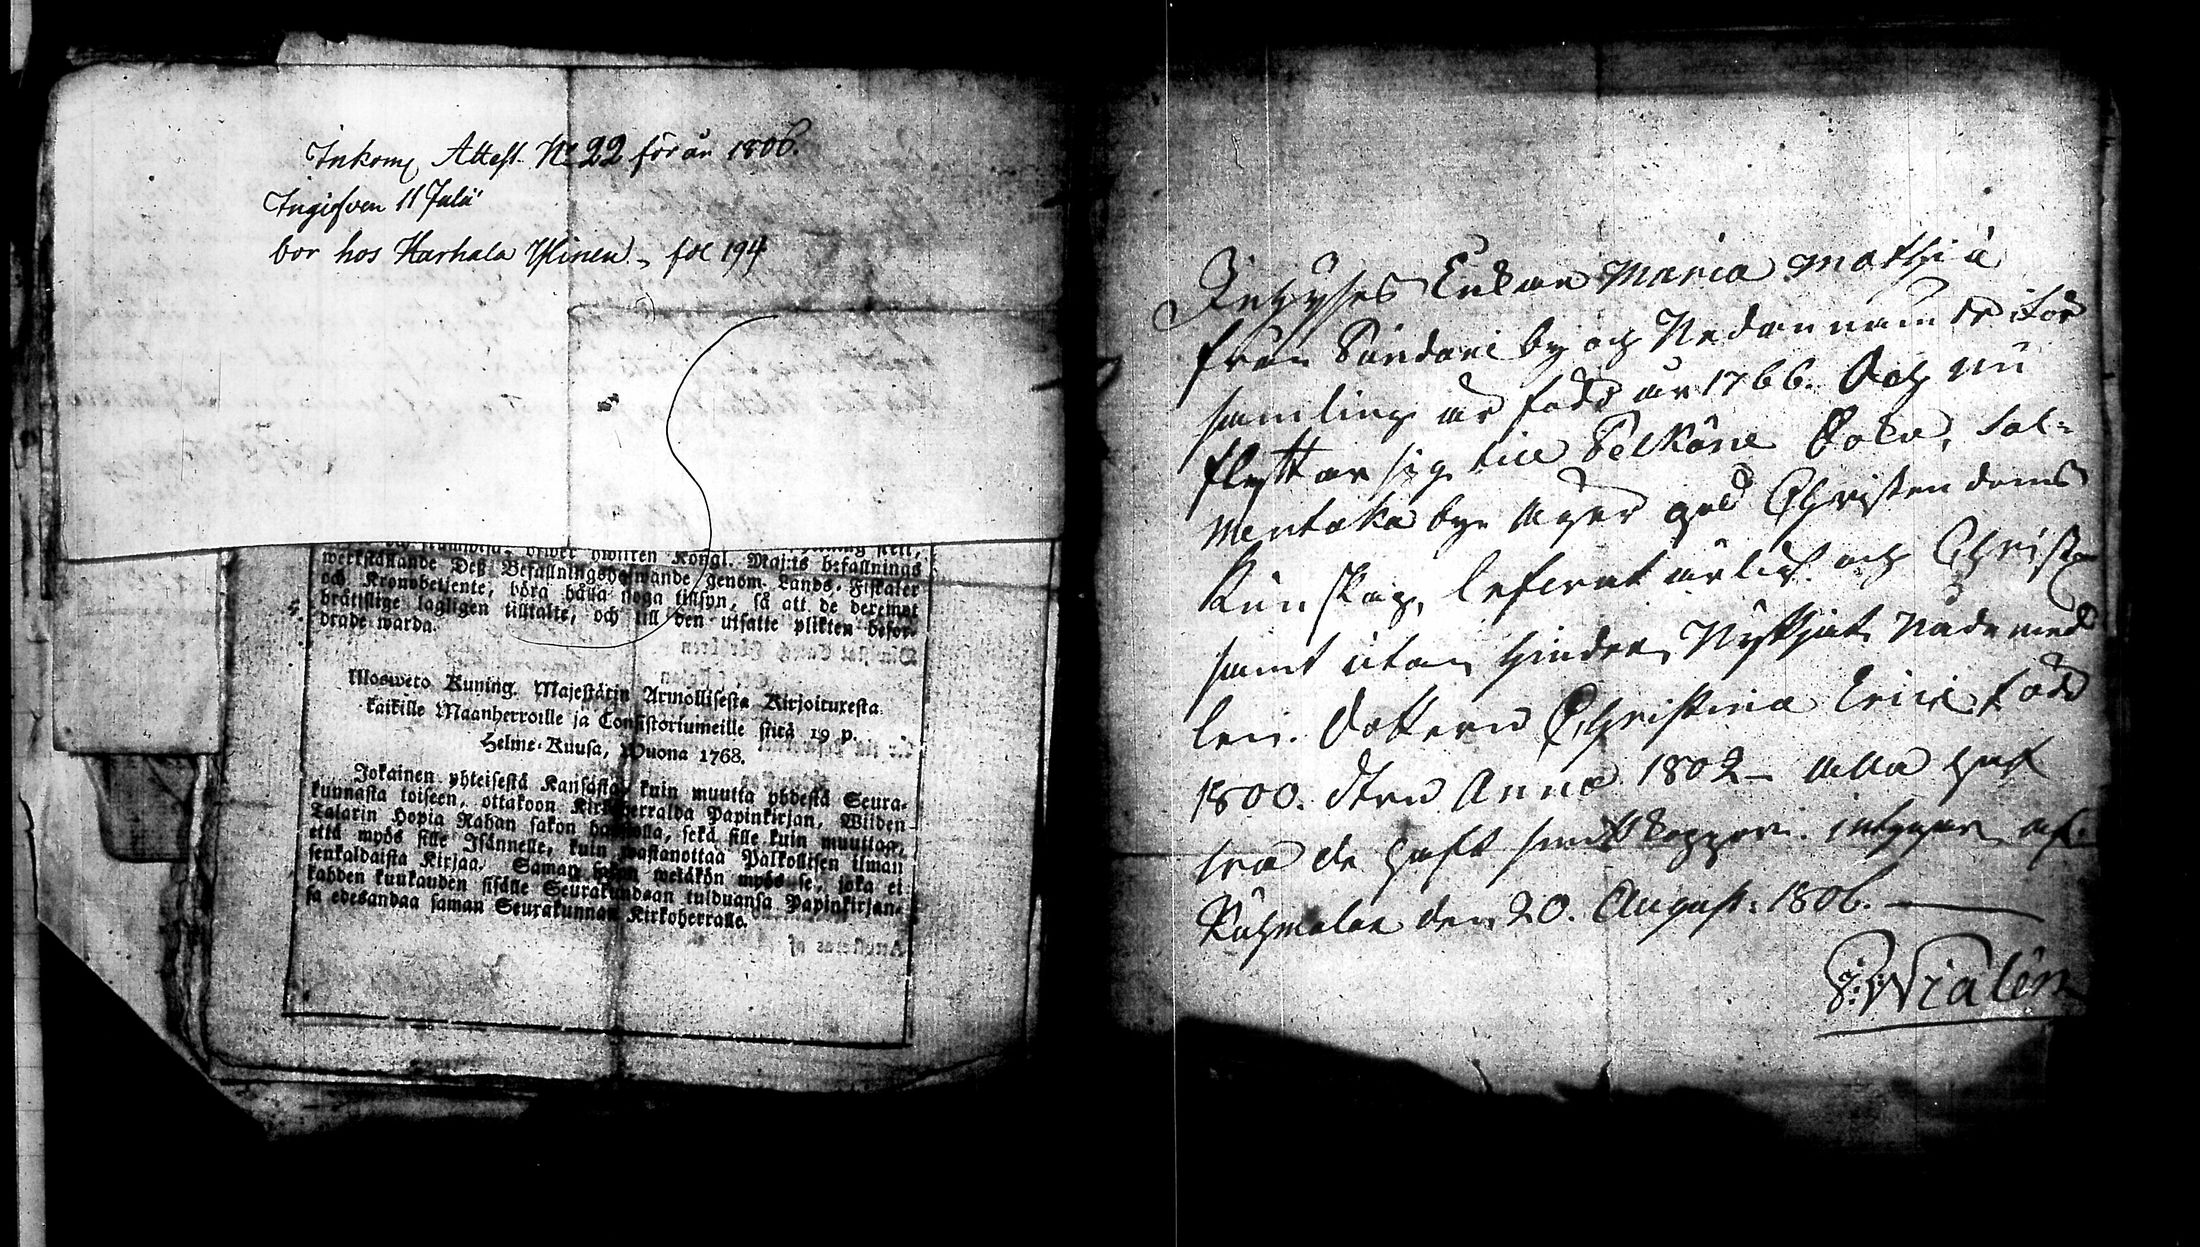 Inkom. Attest. No 22 för år 1806.
Ingifven 11 Julii
bor hos Harhala fol 194
werkställande Deß Befallningshafwande genom Lands-Fiskaler
och Kronobetjente, böra hålla noga tillsyn, så att de deremot
brätslige lagligen tilltalte, och till den utsatte plikten befor-
drade warda.
Mosweto Kuning. Majestätin Armollisesta Kirjoituxesta
kaikille Maanherroille ja Consistoriumeille siitä 19 p.
Helme-Kuusa, Wuona 1768.
Jokainen yhteisestä Kansasta, kuin muutta yhdestä Seura-
kunnasta toiseen, ottakoon Kirkoherralda Papinkirjan, Wiiden
Talarin Hopia Rahan sakon haastolla, sekä sille kuin muuttaa,
että myös sille Isännelle, kuin wastanottaa Palkollisen ilman
senkaldaista Kirjaa. Saman wetäkön myös se, joka ei
kahden kuukauden sisälle Seurakundaan tulduansa Papinkirjan-
sa edesandaa saman Seurakunnan Kirkoherralle.
Enkan Maria Mathiä
från by och Nedannämde för
samling är född år 1766. Och nu
flyttar sig till Pelkäne Sokn, Sal-
mentaka by. Äger god Christendoms
Kunskap, lefvrat ärligt och Christl.
samt utan hinder Nyttjat Nådemed
len. Dottern Christina Eric född
1800. dtrn Anna 1802 – Alla haf
wa de haft smittkoppor. intygar af
Kuhmalax den 20. August: 1806.
Wialén